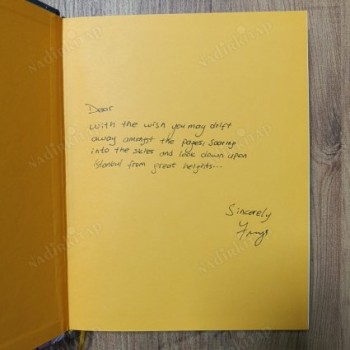 Dear
With the wish you may drift
away amongst the pages, soaring
into the skies and look down upon
Istanbul from great heights...
Sincerely
nadirkitap